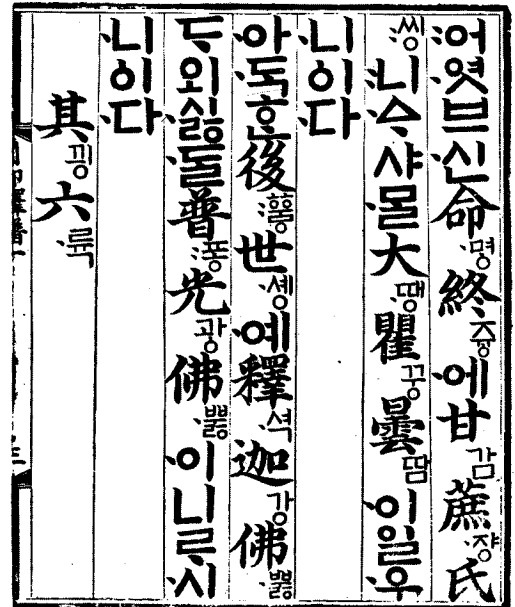 어엿브신命명終즁에甘감蔗쟝氏
씽니ᅀᆞ샤ᄆᆞᆯ大땡瞿꿍曇땀이일우
니ᅌᅵ다
아ᄃᆞᆨᄒᆞᆫ後ᅘᅮᇢ世솅예釋셕迦강佛뿌ᇙ
ᄃᆞ외시ᇙᄃᆞᆯ普퐁光광佛뿌ᇙ이니ᄅᆞ시
니ᅌᅵ다
其끵六륙